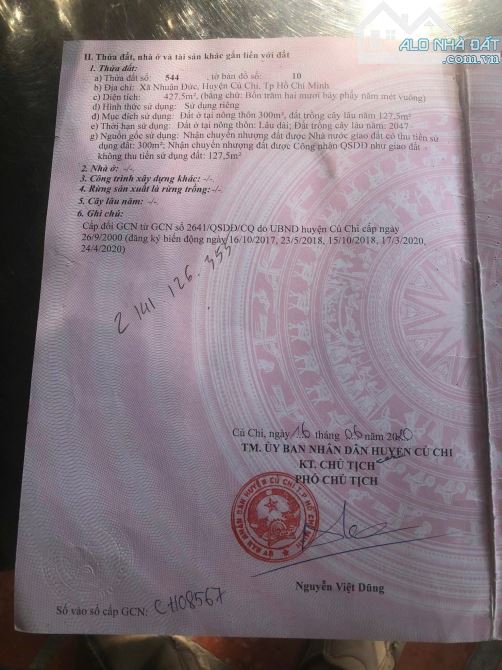 ALO NHÀ ĐẤT
.com.vn
II. Thửa đất, nhà ở và tài sản khác gắn liền với đất
1. Thửa đất:
a) Thửa đất số: 544 , tờ bản đồ số: 10
b) Địa chỉ: Xã Nhuận Đức, Huyện Củ Chi, Tp Hồ Chí Minh
c) Diện tích: 427.5m², (bằng chữ: Bốn trăm hai mươi bảy phẩy năm mét vuông)
d) Hình thức sử dụng: Sử dụng riêng
đ) Mục đích sử dụng: Đất ở tại nông thôn 300m², đất trồng cây lâu năm 127,5m²
e) Thời hạn sử dụng: Đất ở tại nông thôn: Lâu dài; Đất trồng cây lâu năm: 2047
g) Nguồn gốc sử dụng: Nhận chuyển nhượng đất được Nhà nước giao đất có thu tiền sử
dụng đất: 300m²; Nhận chuyển nhượng đất được Công nhận QSDĐ như giao đất
không thu tiền sử dụng đất: 127,5m²
2. Nhà ở: -/-
3. Công trình xây dựng khác: -/-
4. Rừng sản xuất là rừng trồng: -/-
5. Cây lâu năm: -/-
6. Ghi chú:
Cấp đổi GCN từ GCN số 2641/QSDĐ/CQ do UBND huyện Củ Chi cấp ngày
26/9/2000 (đăng ký biến động ngày 16/10/2017, 23/5/2018, 15/10/2018, 17/3/2020,
24/4/2020)
2 141 126.355
Củ Chi, ngày 16 tháng 06 năm 2020
TM. ỦY BAN NHÂN DÂN HUYỆN CỦ CHI
KT. CHỦ TỊCH
PHÓ CHỦ TỊCH
Nguyễn Việt Dũng
Số vào sổ cấp GCN: CH08567